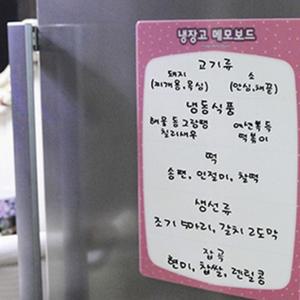 냉장고 메모보드
고기류
돼지 소
(찌개용, 목심) (안심, 채끝)
냉동식품
해물 동그랑땡
칠리새우 떡볶이
떡
송편, 인절미, 찰떡
생선류
조기 5마리, 갈치 2도막
잡곡
현미, 찹쌀, 렌틸콩